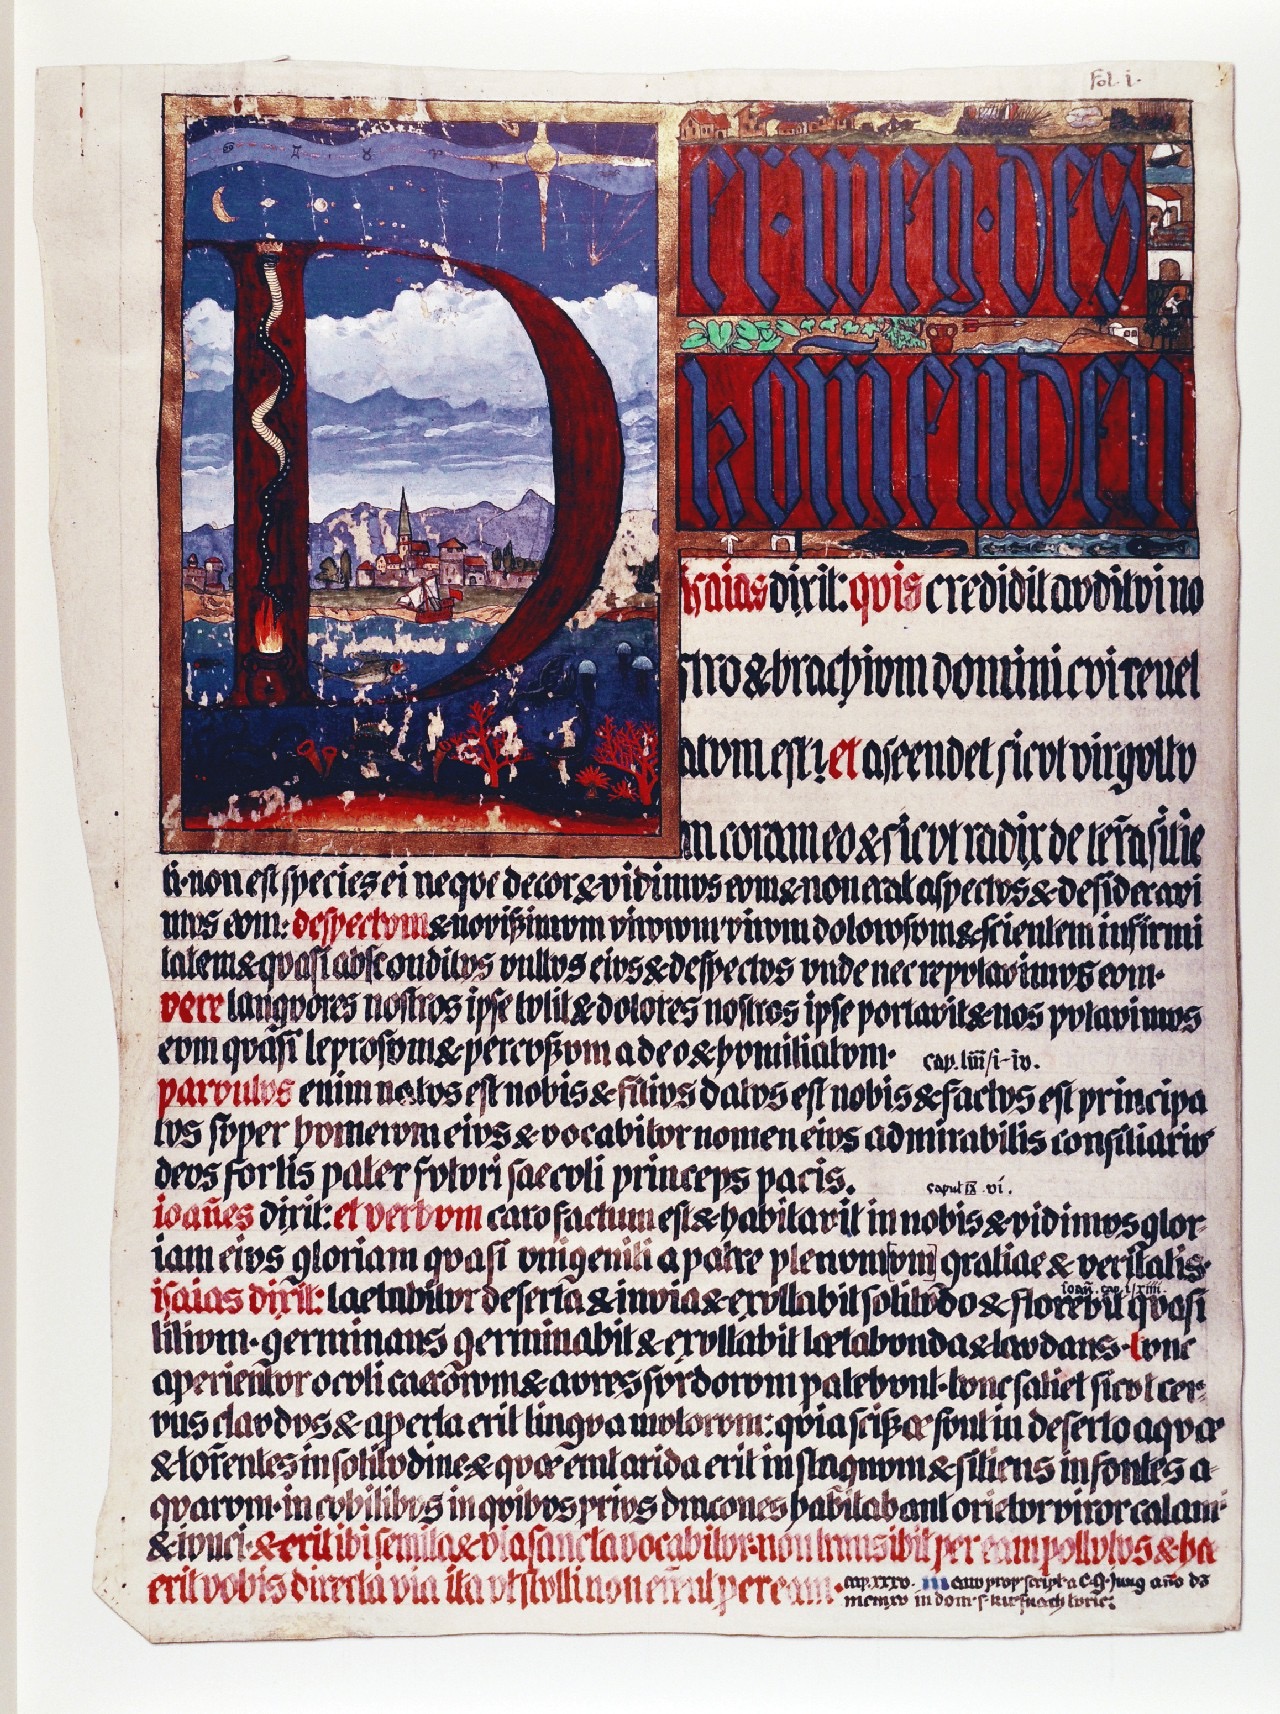 Fol. i.
Der·weg·des
kom̄enden
isaias dixit: quis credidit auditui no
stro & brachium domini cui revel
atum est? et ascendet sicut virgultu
m coram eo & sicut radix de ter̄a sitie
ti·non est species ei neque decor & vidimus eum & non erat aspectus & desideravi
mus eum: despectum & novißimum virorum virum dolorosum & scientem infirmi
tatem & quasi absconditus vultus eius & despectus unde nec reputavimus eum·
vere languores nostros ipse tulit & dolores nostros ipse portavit & nos putavimus
eum quasi leprosum & percußum a deo & humiliatum· cap. liii/i-iv.
parvulus enim natus est nobis & filius datus est nobis & factus est principa
tus super humerum eius & vocabitur nomen eius admirabilis consiliarius
deus fortis pater futuri saeculi princeps pacis. caput ix. vi.
ioan̄es dixit: et verbum caro factum est & habitavit in nobis & vidimus glor-
iam eius gloriam quasi unigeniti a patre plenum[um] gratiae & veritatis·
ioan̄. cap. i/xiiii.
isaias dixit: laetabitur deserta & invia & exultabit solitudo & florebit quasi
lilium·germinans germinabit & exultabit lætabunda & laudans·tunc
aperientur oculi caecōrum & aures surdorum patebunt·tunc saliet sicut cer-
vus claudus & aperta erit lingua mutorum: quia scißæ sunt in deserto aquæ
& tor̄entes in solitudine & quæ erat arida erit in stagnum & sitiens in fontes a-
quarum·in cubilibus in quibus prius dracones habitabant orietur viror calami
& iunci·& erit ibi semita & via sancta vocabitur·non transibit per eam pollutus & hæc
erit vobis directa via ita ut stulti non er̄ent per eam· cap. xxxv. manu propr. scripta C.G. Jung año dō
mcmxv in dom. s. kusnach turic: